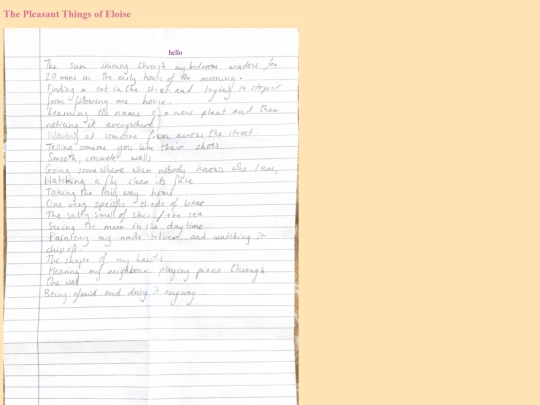 The Pleasant Things of Eloise
hello
The sun shining through my bedroom window for
20 mins in the early hours of the morning.
Finding a cat in the street and trying to stop it
from following me home.
Learning the name of a new plant and then
noticing it everywhere
Waving at someone from across the street.
Telling someone you like their shoes
Smooth, concrete walls
Going somewhere where nobody knows who I am,
Watching a fly clean its face
Taking the long way home
One very specific shade of blue
The salty smell of skin/the sea
Seeing the moon in the daytime
Painting my nails and watching it
chip off.
The shape of my hands.
Hearing my neighbour playing piano through
the wall
Being afraid and doing it anyway